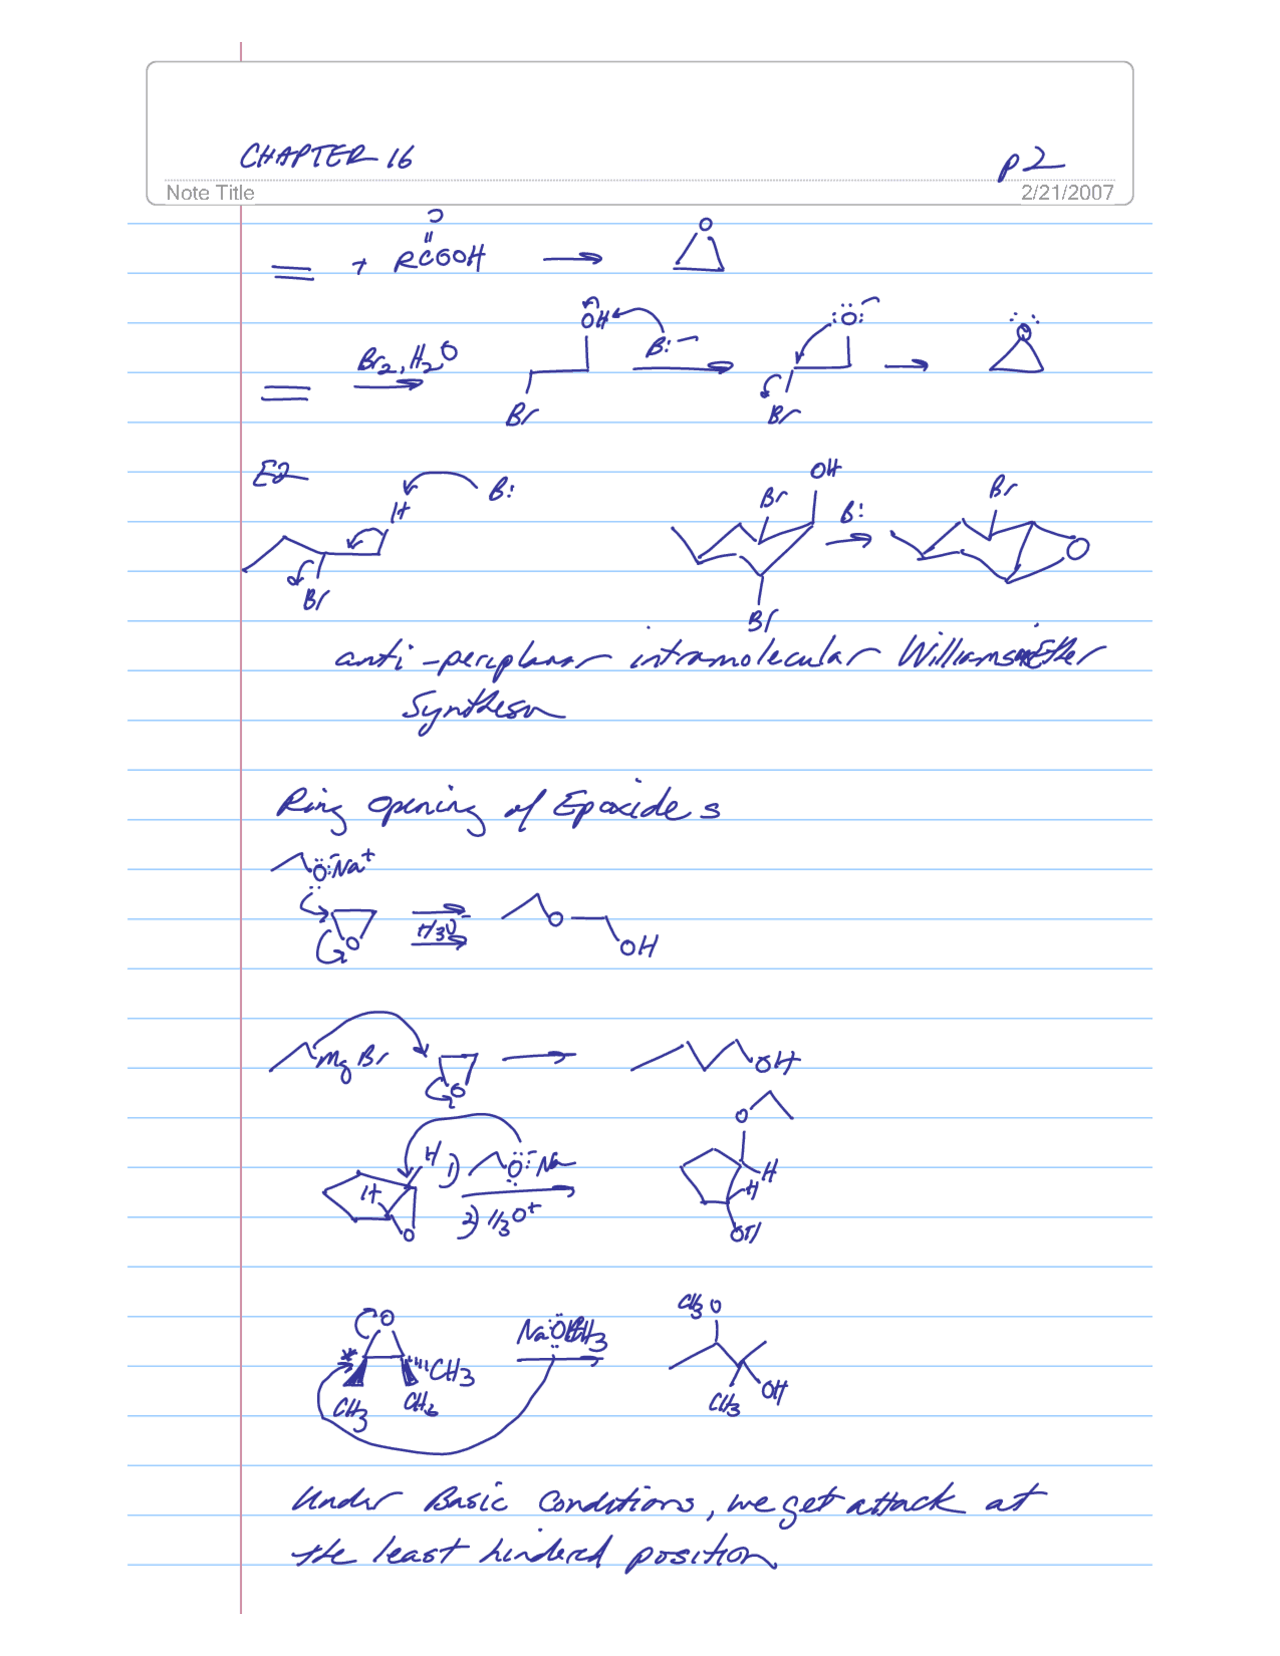 CHAPTER 16 p2
Note Title 2/21/2007
O
= + RCOOH → O
OH B:⁻ :O:⁻ O
Br₂, H₂O
Br Br
E2 B: OH
H Br B: Br
O
Br Br
anti-periplanar intramolecular Williamson Ether
Synthesis
Ring Opening of Epoxides
O:⁻Na⁺
H₃O⁺ O
O OH
MgBr O OH
O
H 1) O:⁻Na H
H H
2) H₃O⁺ O OH
O CH₃O
NaOCH₃
* CH₃
CH₃ CH₃ CH₃ OH
Under Basic Conditions, we get attack at
the least hindered position